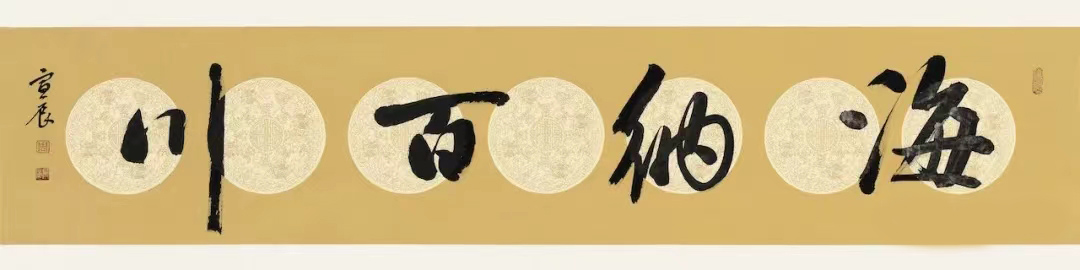 海纳百川
宣辰